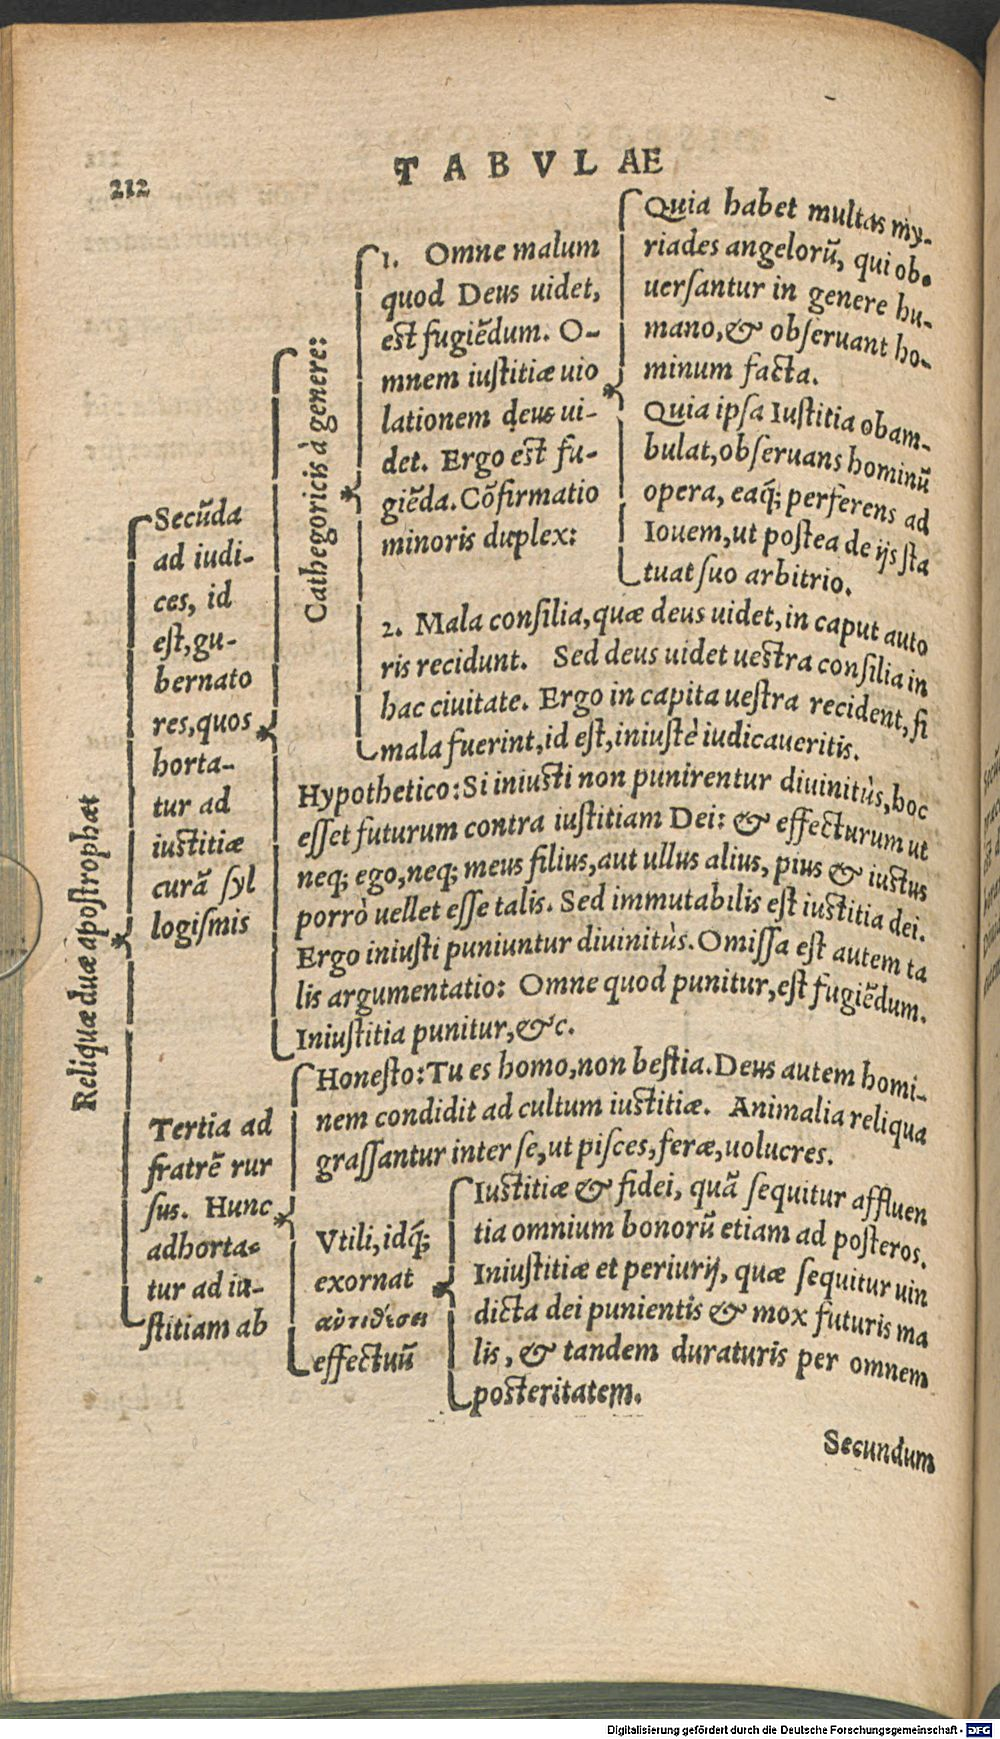 212
TABVLAE
Reliquæ duæ apostrophæ
Secūda
ad iudi-
ces, id
est, gu-
bernato
res, quos
horta-
tur ad
iustitiæ
curā syl
logismis
Cathegoricis à genere:
1. Omne malum
quod Deus uidet,
est fugiēdum. O-
mnem iustitiæ uio
lationem deus ui-
det. Ergo est fu-
giēda. Cōfirmatio
minoris duplex:
Quia habet multas my-
riades angelorū, qui ob-
uersantur in genere hu-
mano, & obseruant ho-
minum facta.
Quia ipsa Iustitia obam-
bulat, obseruans hominū
opera, eaq́; perferens ad
Iouem, ut postea de ijs sta
tuat suo arbitrio.
2. Mala consilia, quæ deus uidet, in caput auto
ris recidunt. Sed deus uidet uestra consilia in
hac ciuitate. Ergo in capita uestra recident, si
mala fuerint, id est, iniustè iudicaueritis.
Hypothetico: Si iniusti non punirentur diuinitùs, hoc
esset futurum contra iustitiam Dei: & effecturum ut
neq; ego, neq; meus filius, aut ullus alius, pius & iustus
porrò uellet esse talis. Sed immutabilis est iustitia dei.
Ergo iniusti puniuntur diuinitùs. Omissa est autem ta
lis argumentatio: Omne quod punitur, est fugiēdum.
Iniustitia punitur, &c.
Tertia ad
fratrē rur
sus. Hunc
adhorta-
tur ad iu-
stitiam ab
Honesto: Tu es homo, non bestia. Deus autem homi-
nem condidit ad cultum iustitiæ. Animalia reliqua
grassantur inter se, ut pisces, feræ, uolucres.
Vtili, idq́;
exornat
ἀντιθέσει
effectuū
Iustitiæ & fidei, quā sequitur affluen
tia omnium bonorū etiam ad posteros.
Iniustitiæ et periurij, quæ sequitur uin
dicta dei punientis & mox futuris ma
lis, & tandem duraturis per omnem
posteritatem.
Secundum
Digitalisierung gefördert durch die Deutsche Forschungsgemeinschaft - DFG